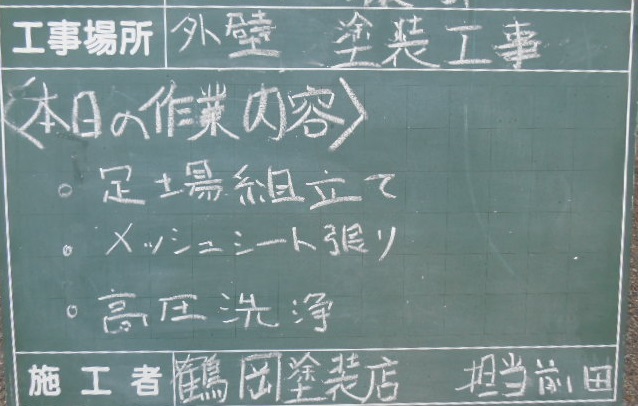 工事場所 外壁 塗装工事
〈本日の作業内容〉
。足場組立て
。メッシュシート張り
。高圧洗浄
施工者 鶴岡塗装店 担当前田